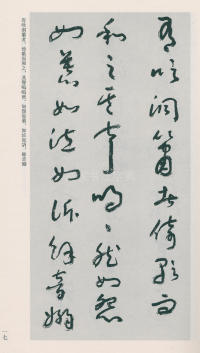 有吹洞簫者倚歌而
和之其聲嗚〻然如怨
如慕如泣如訴餘音嫋
有吹洞簫者，倚歌而和之，其聲嗚嗚然，如怨如慕，如泣如訴，餘音嫋
一七